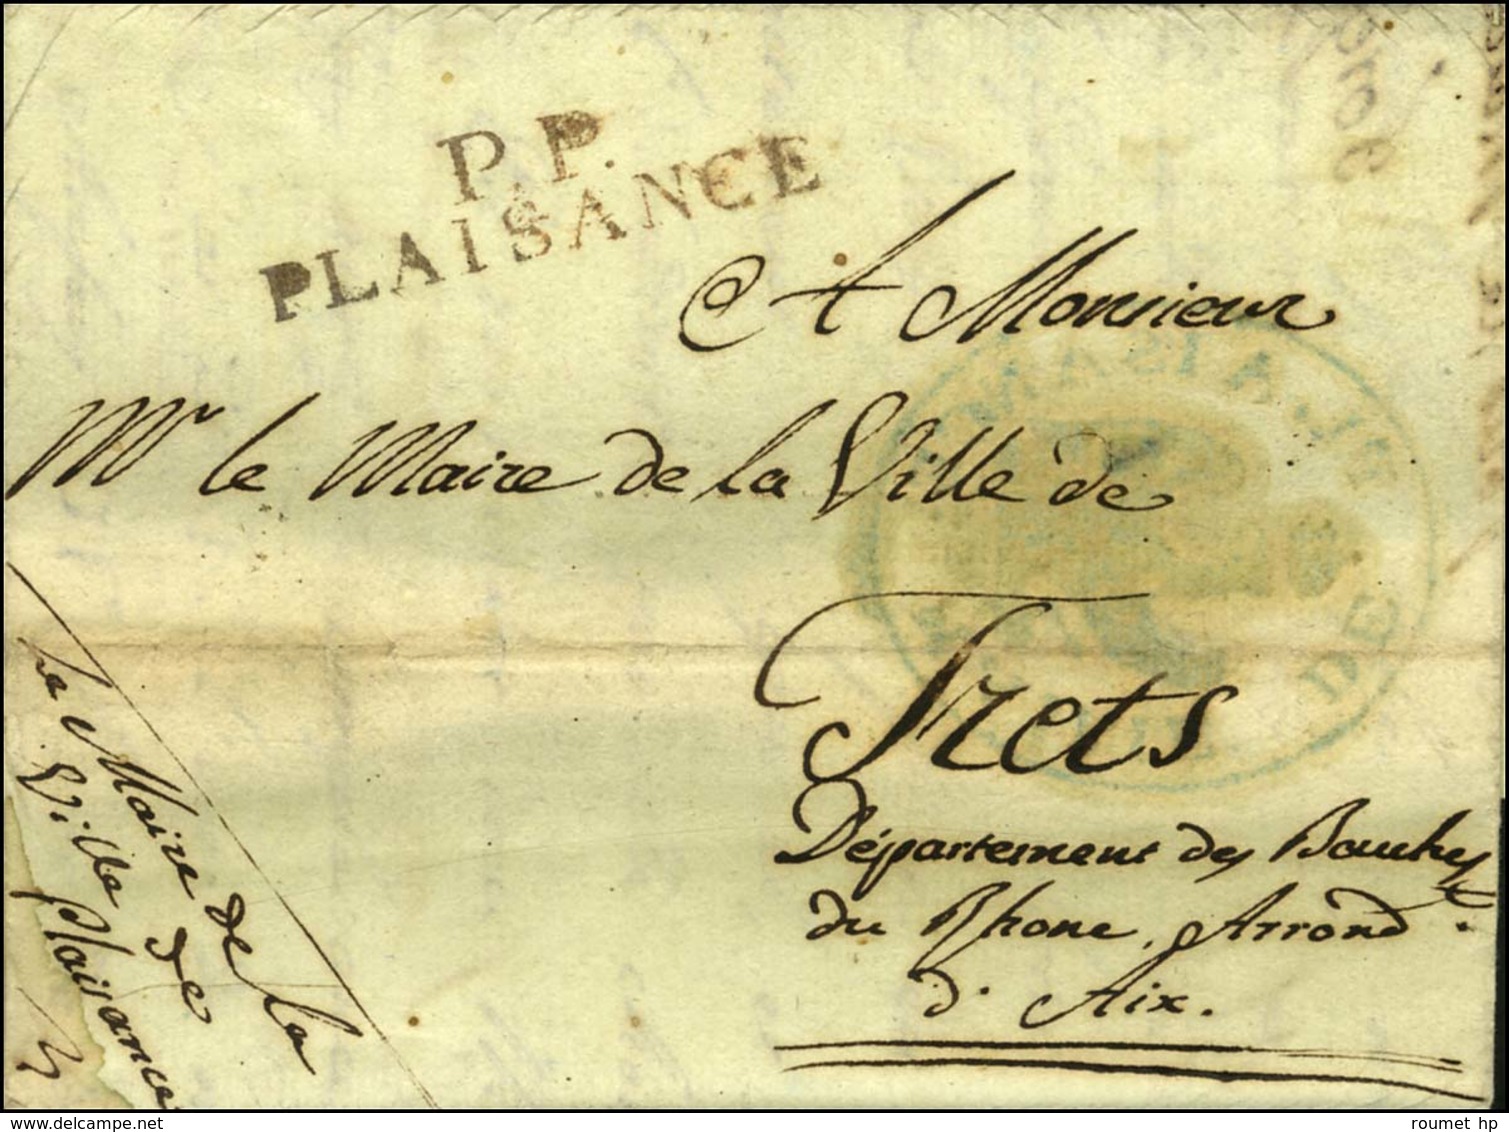 P. P.
PLAISANCE
A Monsieur
Mr le Maire de la Ville de
Trets
Département des Bouches
du Rhone, Arrondt.
d'Aix.
Le Maire de la
Ville de
Plaisance
PLAISANCE
DE
delcampe.net
roumet hp